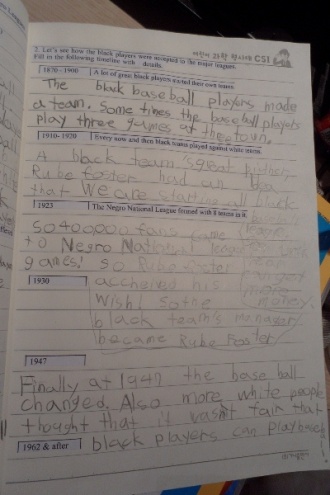 어린이 과학 형사대 CSI
2. Let's see how the black players were accepted to the major leagues.
Fill in the following timeline with details.
1870 - 1900 A lot of great black players started their own teams
The black baseball players made
a team. Some times the baseball players
play three games at the town.
1910-1920 Every now and then black teams played against white teams.
A black team's great pitcher
Rube foster had an
that We are starting all black
1923 The Negro National League formed with 8 teams in it.
so 400000 fans came
to Negro National league
games! so Rube foster
1930 accheived his
wish! So the
black team's manager
became Rube Foster
more
money.
1947
Finally at 1947 the base ball
changed. Also more white people
thought that it wasn't fair that
1962 & after black players can play back